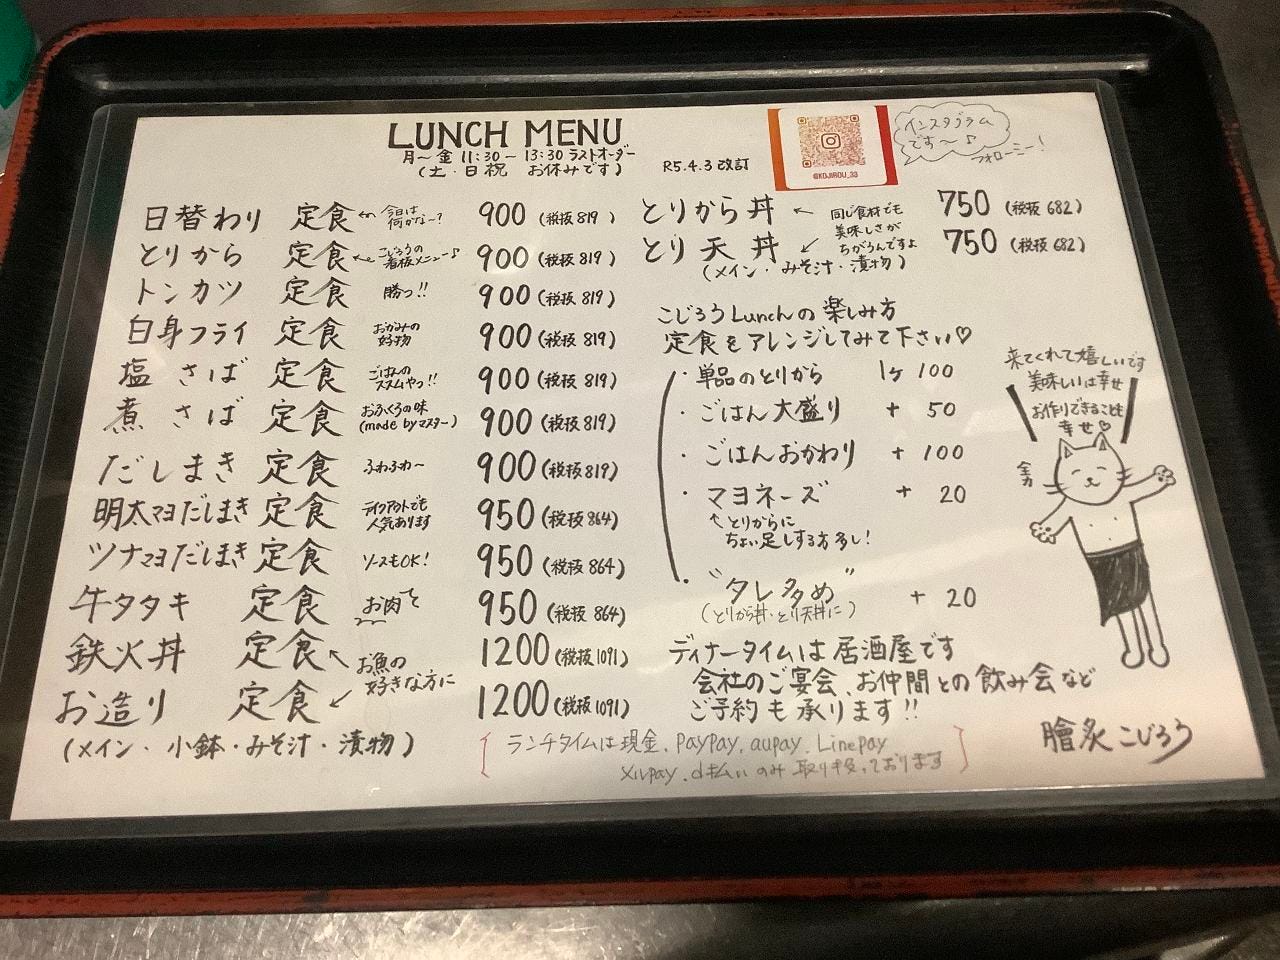 LUNCH MENU
月〜金 11:30〜13:30 ラストオーダー
(土・日祝 お休みです)
R5.4.3 改訂
@KOJIROU_33
インスタグラム
です〜♪
フォローミー!
日替わり 定食 ← 今日は何かなー? 900 (税抜 819)
とりから 定食 ← こじろうの看板メニュー♪ 900 (税抜 819)
トンカツ 定食 勝つ!! 900 (税抜 819)
白身フライ 定食 おかみの好物 900 (税抜 819)
塩さば 定食 ごはんのススムやつ!! 900 (税抜 819)
煮さば 定食 おふくろの味 (made by マスター) 900 (税抜 819)
だしまき 定食 ふわふわ〜 900 (税抜 819)
明太マヨだしまき 定食 テイクアウトでも人気あります 950 (税抜 864)
ツナマヨだしまき 定食 ソースもOK! 950 (税抜 864)
牛タタキ 定食 お肉で 950 (税抜 864)
鉄火丼 定食 1200 (税抜 1091)
お魚の
好きな方に
お造り 定食 1200 (税抜 1091)
(メイン・小鉢・みそ汁・漬物)
とりから丼 ← 750 (税抜 682)
同じ食材でも
美味しさが
ちがうんですよ
とり天丼 750 (税抜 682)
(メイン・みそ汁・漬物)
こじろうLunchの楽しみ方
定食をアレンジしてみて下さい♡
・単品のとりから 1ヶ 100
・ごはん大盛り + 50
・ごはんおかわり + 100
・マヨネーズ + 20
↑とりからに
ちょい足しする方多し!
・"タレ多め" + 20
(とりから丼・とり天丼に)
来てくれて嬉しいです
美味しいは幸せ
お作りできることも
幸せ♡
ディナータイムは居酒屋です
会社のご宴会、お仲間との飲み会など
ご予約も承ります!!
ランチタイムは現金.PayPay.aupay.Linepay
メルpay.d払いのみ取り扱っております
膾炙こじろう